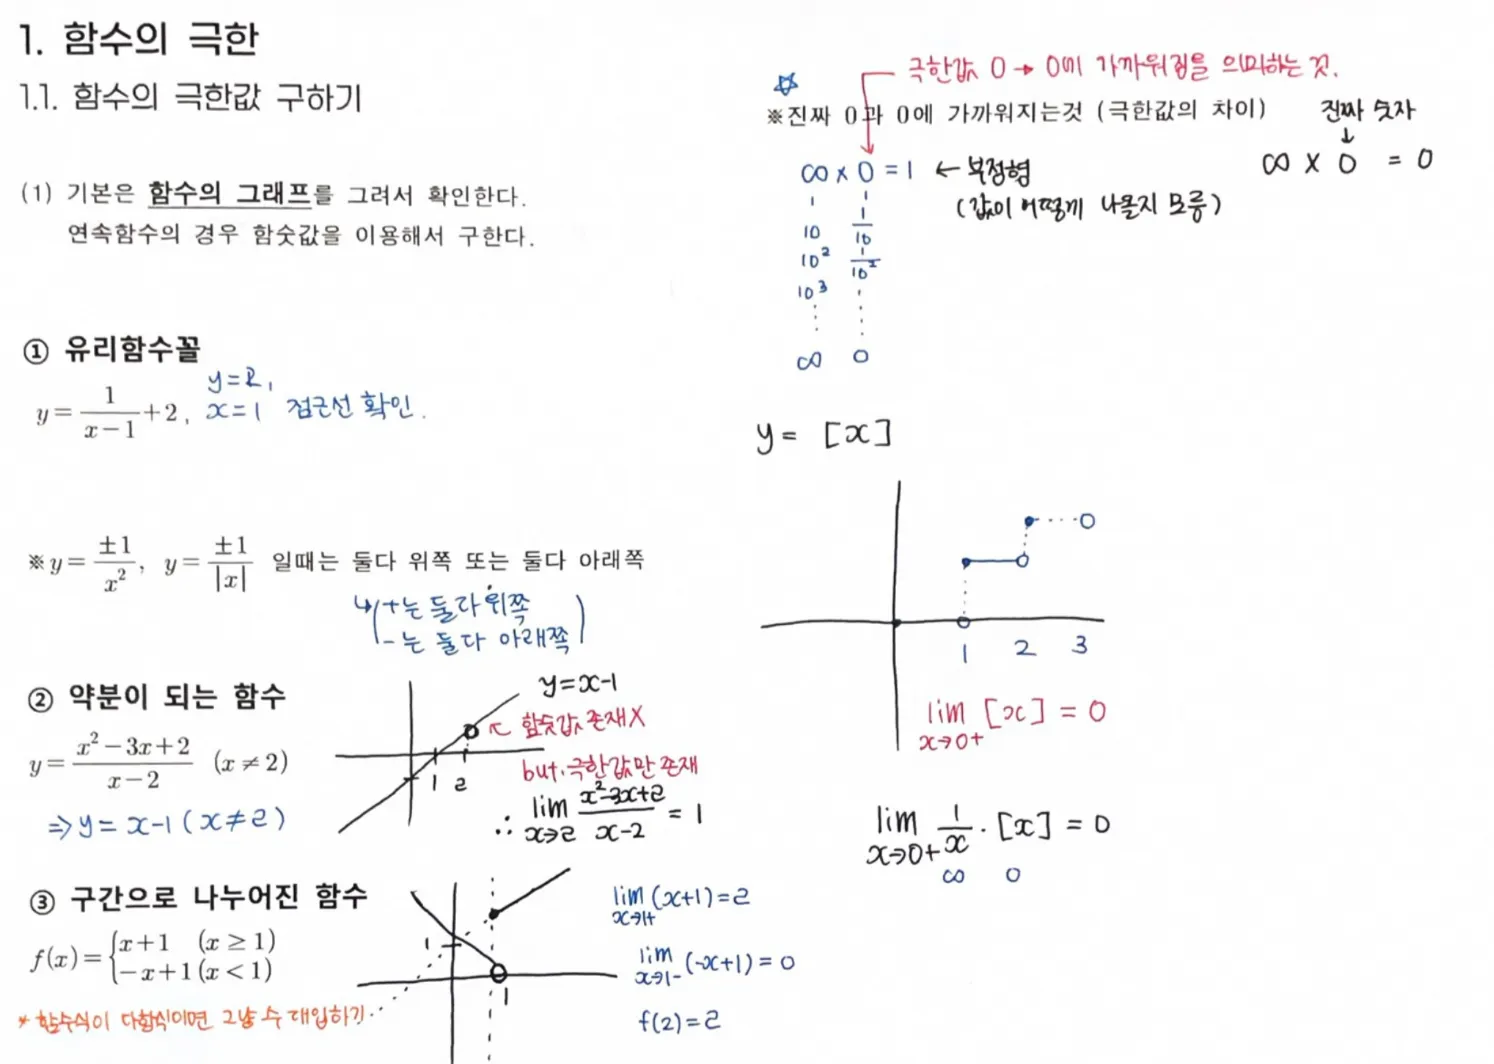 1. 함수의 극한
1.1. 함수의 극한값 구하기
(1) 기본은 함수의 그래프를 그려서 확인한다.
연속함수의 경우 함숫값을 이용해서 구한다.
① 유리함수꼴
y = 1/(x-1) + 2,
y=2,
x=1 점근선 확인.
※ y = ±1/x², y = ±1/|x| 일때는 둘다 위쪽 또는 둘다 아래쪽
↳ (+는 둘다 위쪽
-는 둘다 아래쪽)
② 약분이 되는 함수
y = (x²-3x+2)/(x-2) (x≠2)
⇒ y = x-1 (x≠2)
y=x-1
함숫값 존재X
but. 극한값만 존재
1 2
∴ lim x→2 (x²-3x+2)/(x-2) = 1
③ 구간으로 나누어진 함수
f(x) = { x+1 (x≥1)
-x+1 (x<1)
* 함수식이 다항식이면 그냥 수 대입하기
1
1
lim x→1+ (x+1) = 2
lim x→1- (-x+1) = 0
f(2)=2
극한값 0 → 0에 가까워짐을 의미하는 것.
☆
※진짜 0과 0에 가까워지는것 (극한값의 차이)
진짜 숫자
↓
∞ × 0 = 1 ← 부정형
(값이 어떻게 나올지 모름)
∞ × 0 = 0
1 1
10 1/10
10² 1/10²
10³
∞ 0
y = [x]
1 2 3
lim x→0+ [x] = 0
lim x→0+ 1/x · [x] = 0
∞ 0